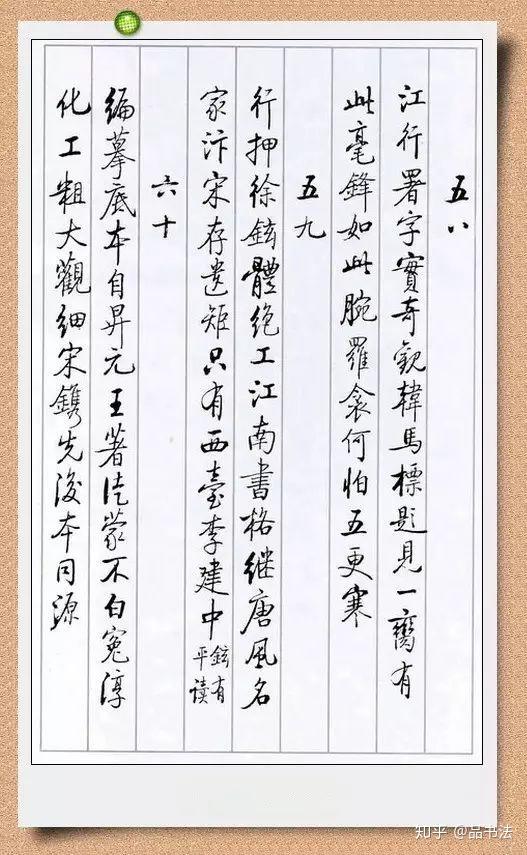 五八
江行署字實奇觀韓馬標題見一臠有
此毫鋒如此腕羅衾何怕五更寒
五九
行押徐鉉體絕工江南書格继唐風名
家汴宋存遗矩只有西臺李建中鉉有平读
六十
编摹底本自昇元王著徒蒙不白冤淳
化工粗大觀细宋鐫先後本同源
知乎 @品书法